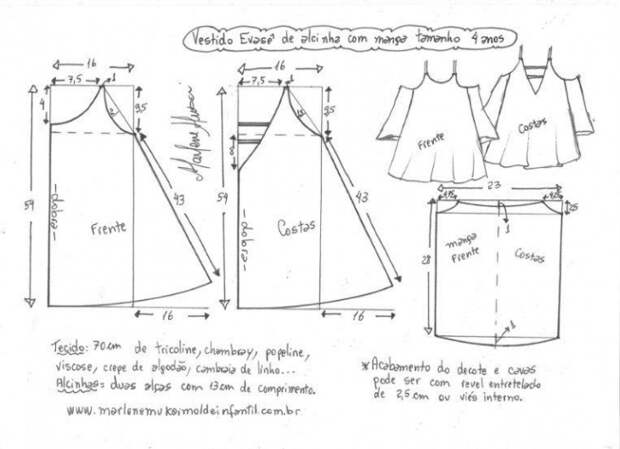 Vestido Evasê de alcinha com manga tamanho 4 anos
16
7,5
1
4
9,5
54
43
dobra
Frente
16
Marlene Mukai
16
7,5
1
9,5
8
54
43
dobra
Costas
16
Frente
Costas
23
2,5
1
28
manga
Frente
Costas
1
Tecido: 70cm de tricoline, chambray, popeline,
viscose, crepe de algodão, cambraia de linho...
Alcinhas = duas alças com 13cm de comprimento.
www.marlenemukaimoldeinfantil.com.br
* Acabamento do decote e cavas
pode ser com revel entretelado
de 2,5 cm ou viés interno.